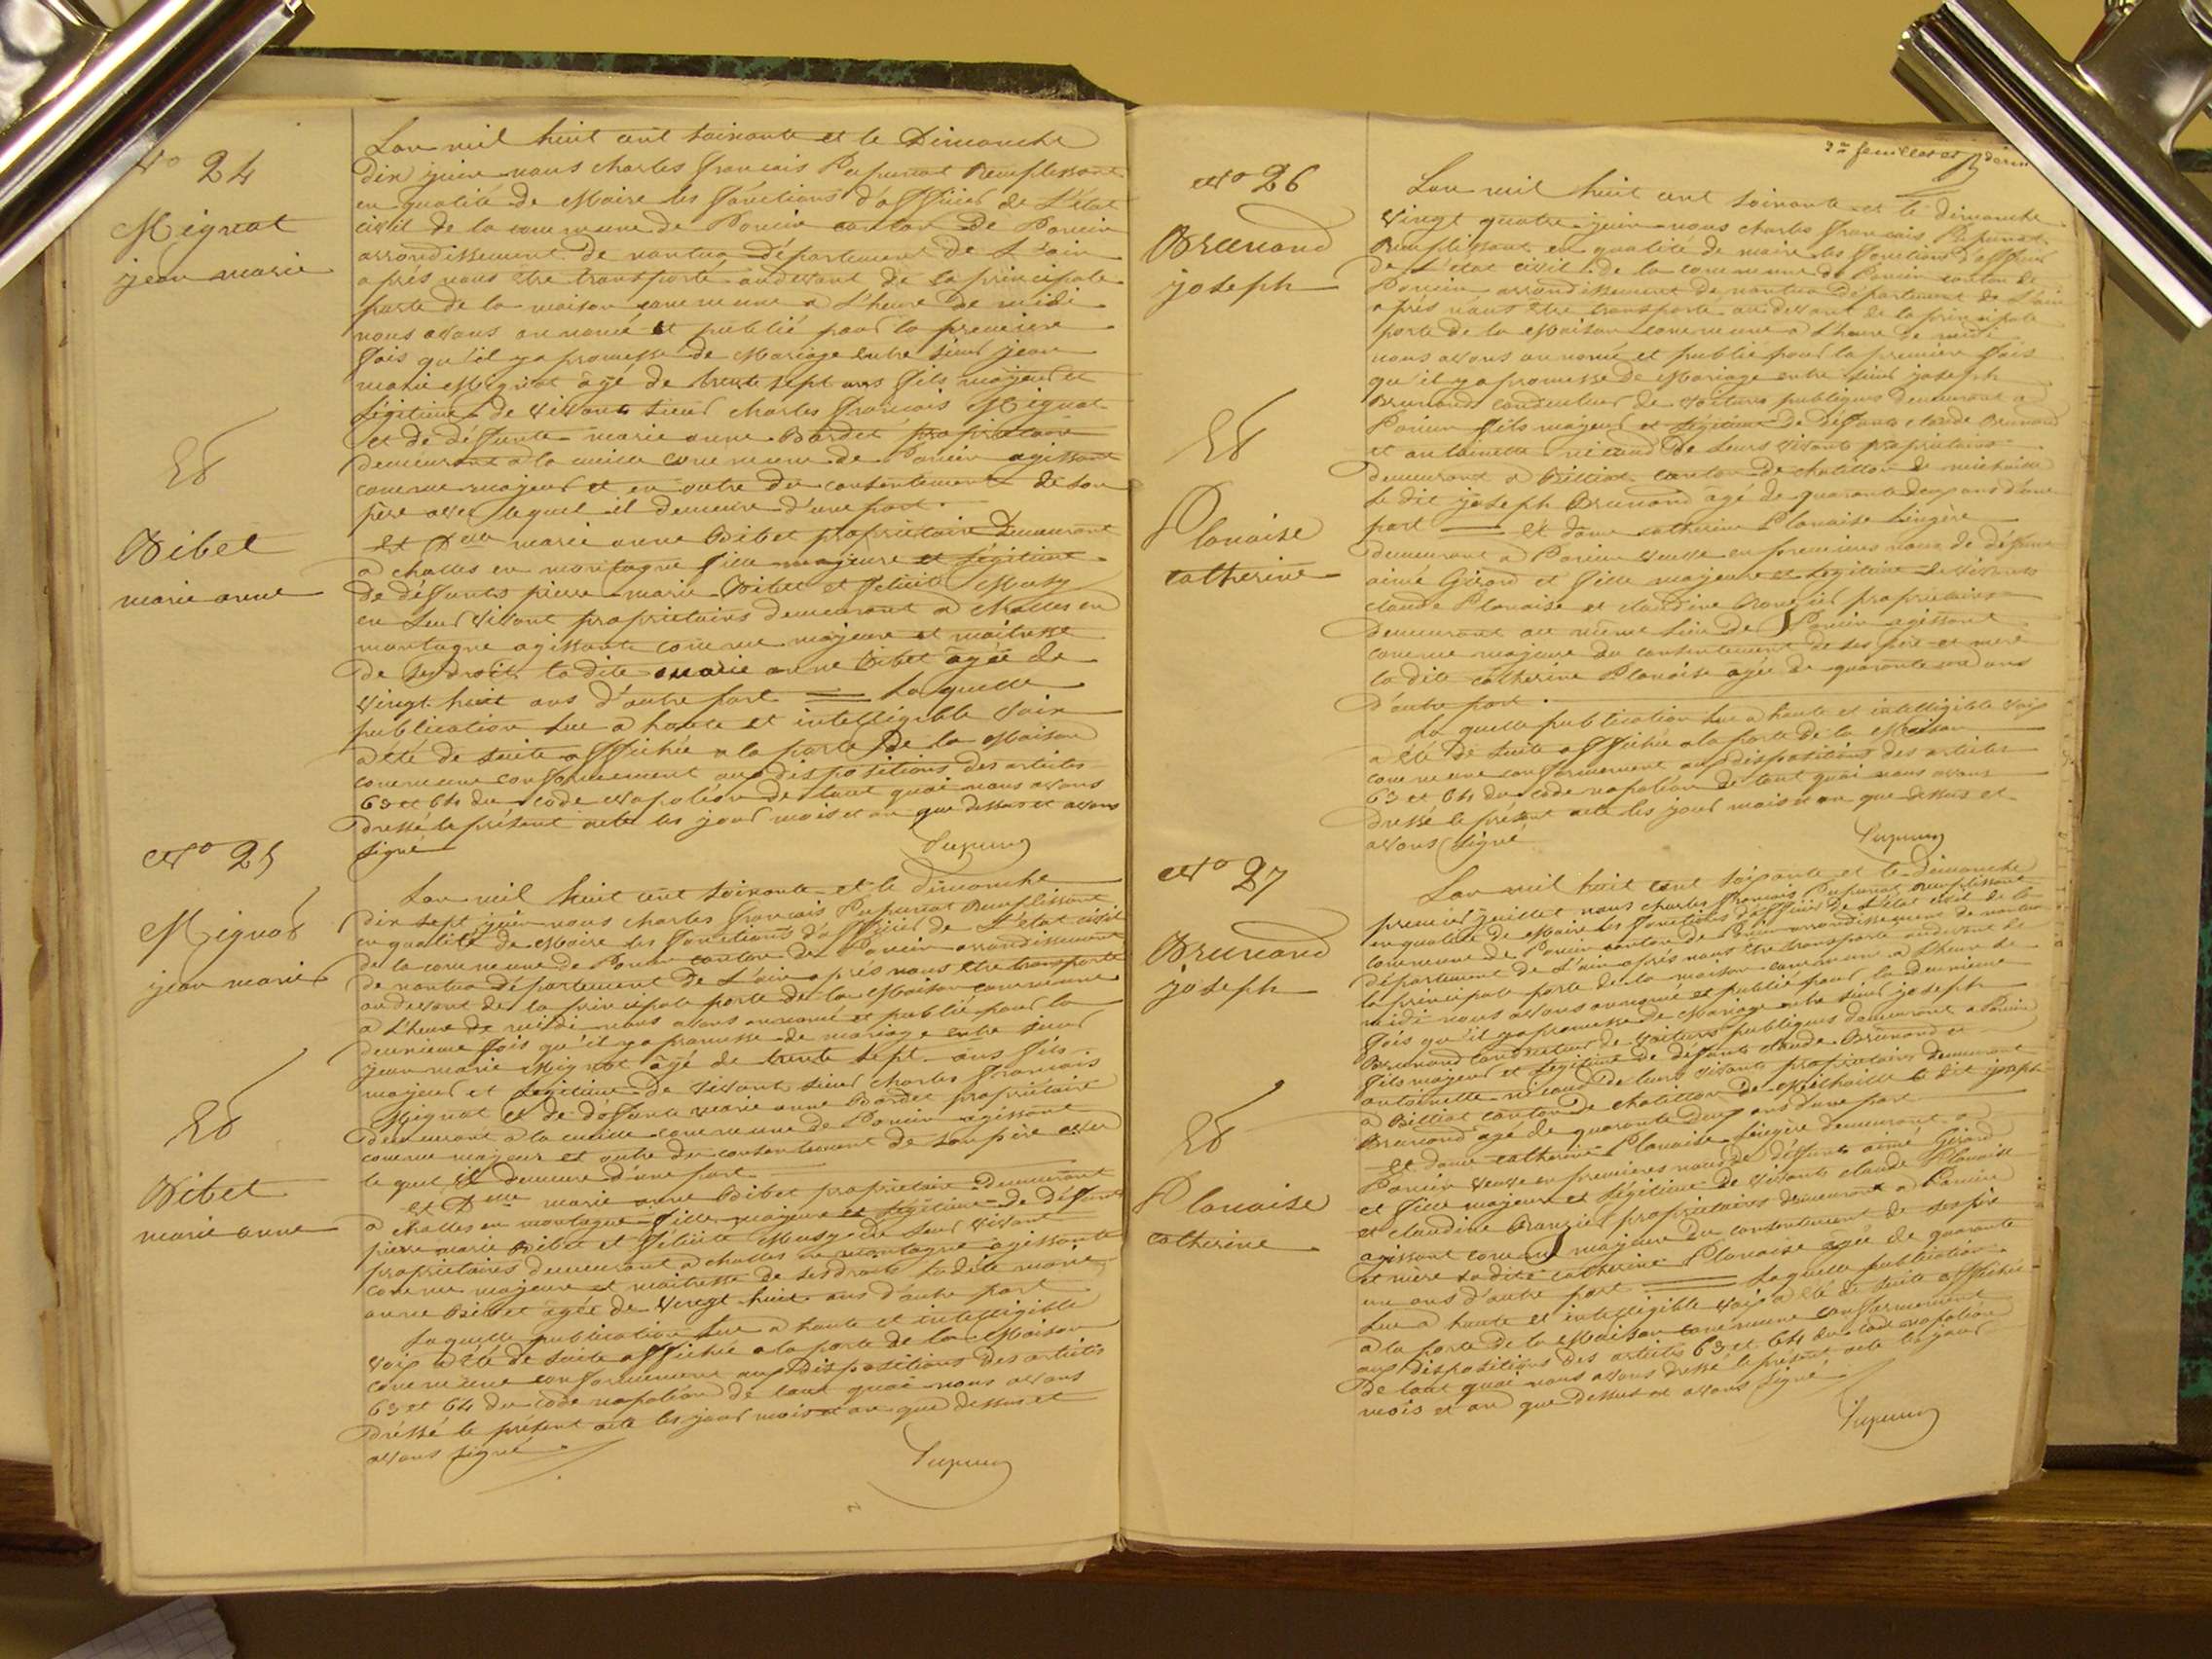 No 24
Mignat
jean marie
Et
Bibet
marie anne
L'an mil huit cent soixante et le Dimanche
dix juin nous charles francais Pupunat Remplissant
en qualité de Maire les fonctions d'officier de L'état
civil de la commune de Poncin canton De Poncin
arrondissement De nantua Département de L'ain
après nous être transporté audevant de la principale
porte de la maison commune a L'heure De midi
nous avons annoncé et publié pour la premiere
fois qu'il y a promesse de Mariage entre sieur jean
marie Mignat âgé de trente sept ans fils majeur et
légitime de vivant sieur charles francais Mignat
et de défunte marie anne Bordet propriétaire
demeurant a la cueille commune de Poncin agissant
comme majeur et en outre du consentement de son
père avec lequel il demeure d'une part.
et Delle marie anne Bibet propriétaire Demeurant
a challes en montagne fille majeure et légitime
de défunts pierre marie Bibet et felicité Musy
en Leur vivant propriétaires demeurant a challes en
montagne agissante comme majeure et maitresse
de ses droits la dite marie anne Bibet âgée de
vingt huit ans d'autre part = La quelle
publication lue a haute et intelligible voix
a été de suite affichée a la porte De la Maison
commune conformement aux dispositions des articles
63 et 64 du code napoléon de tout quoi nous avons
Dressé le présent acte les jour mois et an que dessus et avons
signé
No 25
Mignat
jean marie
Et
Bibet
marie anne
L'an mil huit cent soixante et le dimanche
dix sept juin nous charles francais Pupunat Remplissant
en qualité de Maire les fonctions d'officier de L'état civil
de la commune de Poncin canton de Poncin arrondissement
de nantua département de L'ain après nous être transporté
audevant de la principale porte de la Maison commune
a L'heure de midi nous avons annoncé et publié pour la
deuxieme fois qu'il y a promesse de mariage entre sieur
jean marie Mignat âgé de trente sept ans fils
majeur et légitime De vivant sieur charles francais
Mignat et de défunte marie anne Bordet propriétaire
demeurant a la cueille commune de Poncin agissant
comme majeur et outre du consentement de son père avec
le quel il demeure d'une part.
et Delle marie anne Bibet propriétaire Demeurant
a challes en montagne fille majeure et légitime de défunts
pierre marie Bibet et félicité Musy en Leur vivant
propriétaires demeurant a challes en montagne agissante
comme majeure et maitresse de ses droits la dite marie
anne Bibet agée de vingt huit ans d'autre part
Laquelle publication lue a haute et intelligible
voix a été de suite affichée a la porte de la Maison
commune conformement aux Dispositions des articles
63 et 64 du code napoléon de tout quoi nous avons
dréssé le présent acte les jour mois et an que dessus et
avons signé
No 26
Brunand
joseph
Et
Planaise
catherine
L'an mil huit cent soixante et le dimanche
vingt quatre juin nous charles francais Pupunat
Remplissant en qualité de maire les fonctions d'officier
De L'etat civil de la commune de Poncin canton de
Poncin arrondissement de nantua Département de L'ain
après nous être transporté audevant de la principale
porte de la Maison commune a L'heure de midi
nous avons annoncé et publié pour la premiere fois
qu'il y a promesse De Mariage entre sieur joseph
Brunand conducteur de voitures publiques demeurant a
Poncin fils majeur et légitime De défunts claude Brunand
et antoinette nicoud De Leurs vivants propriétaires
demeurant a Billiat canton de chatillon de michaille
le dit joseph Brunand agé de quarante deux ans d'une
part = et dame catherine Planaise Lingère
demeurant a Poncin veuve en premieres noces de défunt
aimé Girard et fille majeure et légitime de vivants
claude Planaise et claudine propriétaires
demeurant au même Lieu de Poncin agissant
comme majeure du consentement de ses père et mère
la dite catherine Planaise âgée de quarante un ans
d'autre part.
La quelle publication lue a haute et intelligible voix
a été De suite affichée a la porte de la Maison
commune conformement aux dispositions des articles
63 et 64 du code napoléon de tout quoi nous avons
Dressé le présent acte les jour mois et an que dessus et
avons signé
No 27
Brunand
joseph
Et
Planaise
catherine
L'an mil huit cent soixante et le Dimanche
premier juillet nous charles francais Pupunat remplissant
en qualité de Maire les fonctions d'officier de L'état civil de la
commune de Poncin canton de Poncin arrondissement de nantua
département de L'ain après nous être transporté audevant de
la principale porte de la maison commune a L'heure de
midi nous avons annoncé et publié pour la deuxieme
fois qu'il y a promesse de Mariage entre sieur joseph
Brunand conducteur de voitures publiques demeurant a Poncin
fils majeur et légitime de défunts claude Brunand et
antoinette nicoud De leurs vivants propriétaires demeurant
a Billiat canton De chatillon de Michaille le dit joseph
Brunand agé de quarante deux ans d'une part
et dame catherine Planaise Lingère demeurant a
Poncin veuve en premieres noces de défunt aimé Girard
et fille majeure et légitime de vivants claude Planaise
et claudine propriétaires demeurant a Poncin
agissant comme majeure du consentement de ses père
et mère la dite catherine Planaise agée de quarante
un ans d'autre part = Laquelle publication
Lue a haute et intelligible voix a été de suite affichée
a la porte de la Maison commune conformement
aux dispositions des articles 63 et 64 du code napoléon
De tout quoi nous avons dressé le présent acte les jour
mois et an que dessus et avons signé